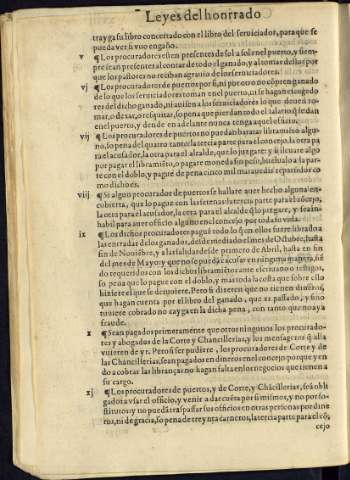 Leyes del honrrado
tray ga su libro concertado con el libro del seruiciador, para que se
pueda ver si vuo engaño.
v ¶ Los procuradores esten presentes de sol a sol en el puerto, y siem-
pre sean presentes al contar de todo el ganado, y al tomar dellos por
que los pastores no reciban agrauio de los seruiciadores.
vj ¶ Los procuradores de puertos por si, ni por otro no cópren ganado
de lo que los seruiciadores toman en el puerto, ni se hagan cogedo
res del dicho ganado, ni auisen a los seruiciadores lo que deuen to-
mar, o dexar, o resquitar, so pena que pierdan todo el salario
en el puerto, y dende en adelante nunca tenga aquel officio.
vij ¶ Los procuradores de puertos no puedan baratar libramiéto algu-
no, so pena del quatro tanto: la tercia parte para el concejo, la otra pa
ra el acusador, la otra para el alcalde, que lo juzgare: y si lleuare algo
por pagar el libramiéto, o pagare moneda sin peso, buelualo a la par-
te con el doblo, y pague de pena cinco mil marauedis repartidos co
mo dicho es.
viij ¶ Si algun procurador de puertos se hallare auer hecho alguna en-
cubierta, que lo pague con las setenas: la tercia parte para el cócejo,
la otra para el acusador, la otra para el alcalde que lo juzgare, y sea in-
habil para auer officio alguno en el concejo por toda su vida.
ix ¶ Los dichos procuradores pagué todo lo que con ellos fuere librado a
las entradas de los ganados, desde mediado el mes de Octubre, hasta
fin de Nouiébre, y a las salidas desde primero de Abril, hasta en fin
del mes de Mayo: y que no se puedá escusar en ninguna manera, sié
do requeridos con los dichos libramiétos ante escriuano o testigos,
so pena que lo pague con el doblo, y mas toda la costa que sobre ello
hiziere el que se lo quiere. Pero si dixeren que no tienen dineros,
que hagan cuenta por el libro del ganado, que es passado, y si no
tuuiere cobrado no cayga en la dicha pena, con tanto que no aya
fraude.
x ¶ Sean pagados primeramente que otros ningunos los procurado-
res y abogados de la Corte y Chancillerias, y los mensageros que alla
vuieren de yr. Pero si ser pudiere, los procuradores de Corte y de
las Chancillerias, sean pagados en dineros en el concejo porque yen
do a cobrar las libranças no hagan falta en los negocios que tienen a
su cargo.
xj ¶ Los procuradores de puertos, y de Corte, y Cháciilerias, seá obli
gados a vsar el officio, y venir a dar cuenta por si mismos, y no por so-
stitutos: y no puedá traspassar sus officios en otras personas por dine
ros, ni de gracia, so pena de treynta carneros, la tercia parte para el có
cejo